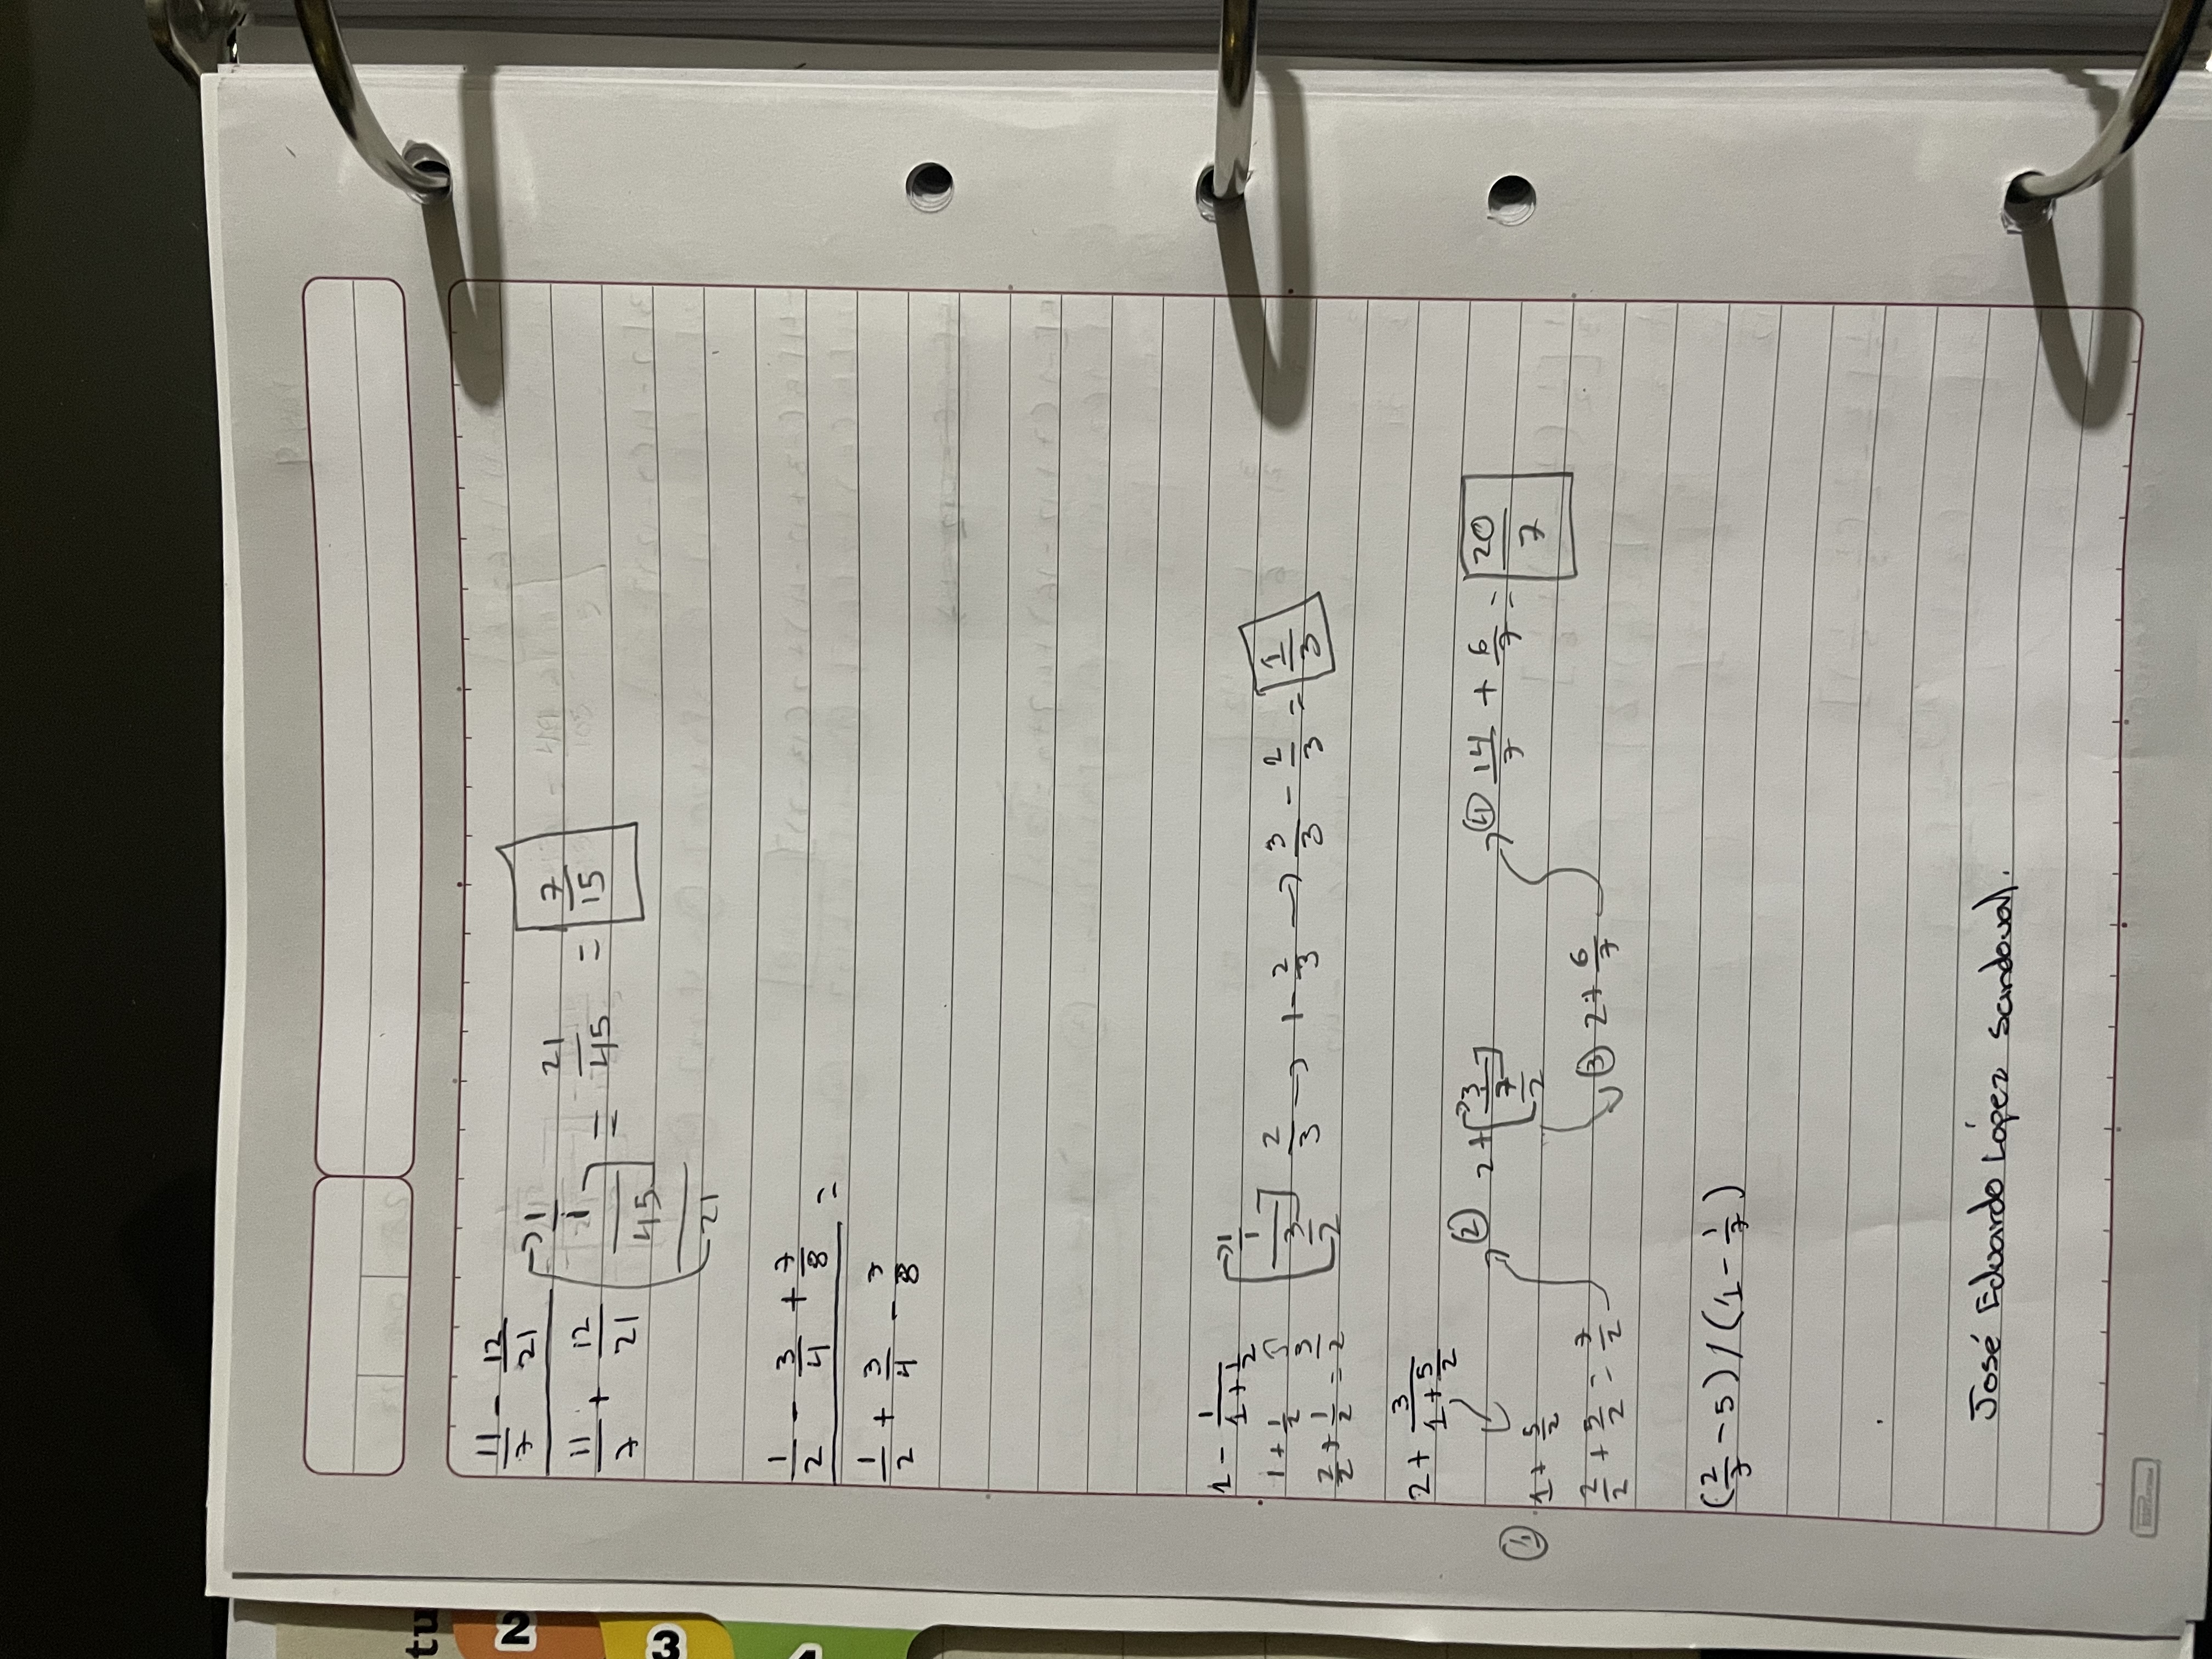 11/7 - 12/21
11/7 + 12/21
1/1
45/21
= 21/45 = 7/15
1/2 - 3/4 + 7/8 =
1/2 + 3/4 - 7/8
1 - 1/1+1/2
1 + 1/2
2/2 + 1/2 = 3/2
1/1
3/2
2/3 → 1 - 2/3 → 3/3 - 2/3 = 1/3
2 + 3/1+5/2
① 1 + 5/2
2/2 + 5/2 = 7/2
② 2 + 3/7/2
③ 2 + 6/7
④ 14/7 + 6/7 = 20/7
(2/7 - 5) / (1 - 1/7)
José Eduardo López Sandoval.
tu
2
3
4